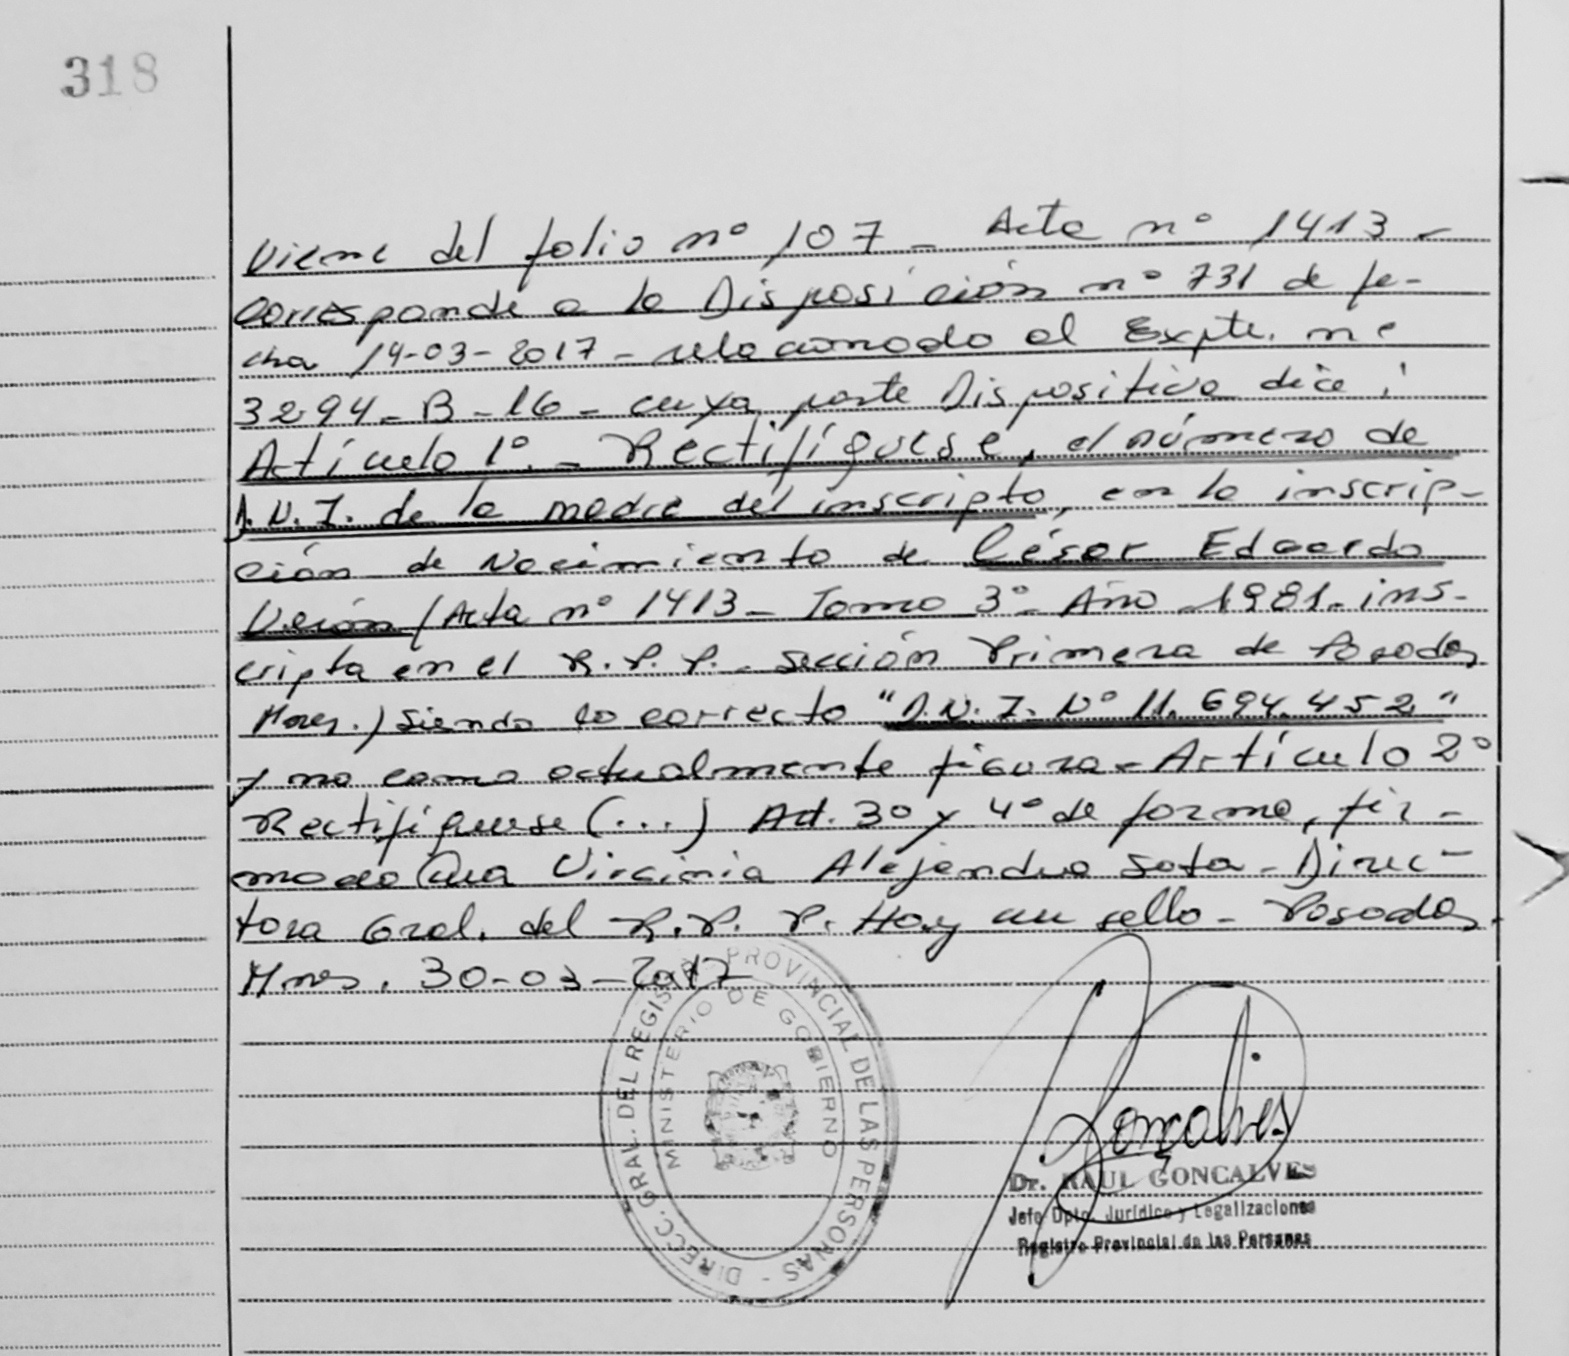 318
Viene del folio nº 107 - Acta nº 1413 -
corresponde a la Disposición nº 731 de fe-
cha 14-03-2017 - relacionado al Expte. nº
3294 - B - 16 - cuya parte Dispositiva dice:
Artículo 1º. - Rectifíquese, el número de
D.N.I. de la madre del inscripto, en la inscrip-
ción de Nacimiento de César Eduardo
Verón (Acta nº 1413 - Tomo 3º - Año 1981 - ins-
cripta en el R.P.P. - Sección Primera de Posadas,
Mnes.) siendo lo correcto "D.N.I. Nº 11.694.452"
y no como actualmente figura - Artículo 2º
Rectifíquese (...) Art. 3º y 4º de forma, fir-
mado Virginia Alejandra Sota - Direc-
tora Gral. del R.P.P. Hay un sello - Posadas,
Mnes. 30-03-2017
DIRECC. GRAL. DEL REGISTRO PROVINCIAL DE LAS PERSONAS -
MINISTERIO DE GOBIERNO
Goncalves
Dr. RAUL GONCALVES
Jefe Dpto. Jurídico y Legalizaciones
Registro Provincial de las Personas